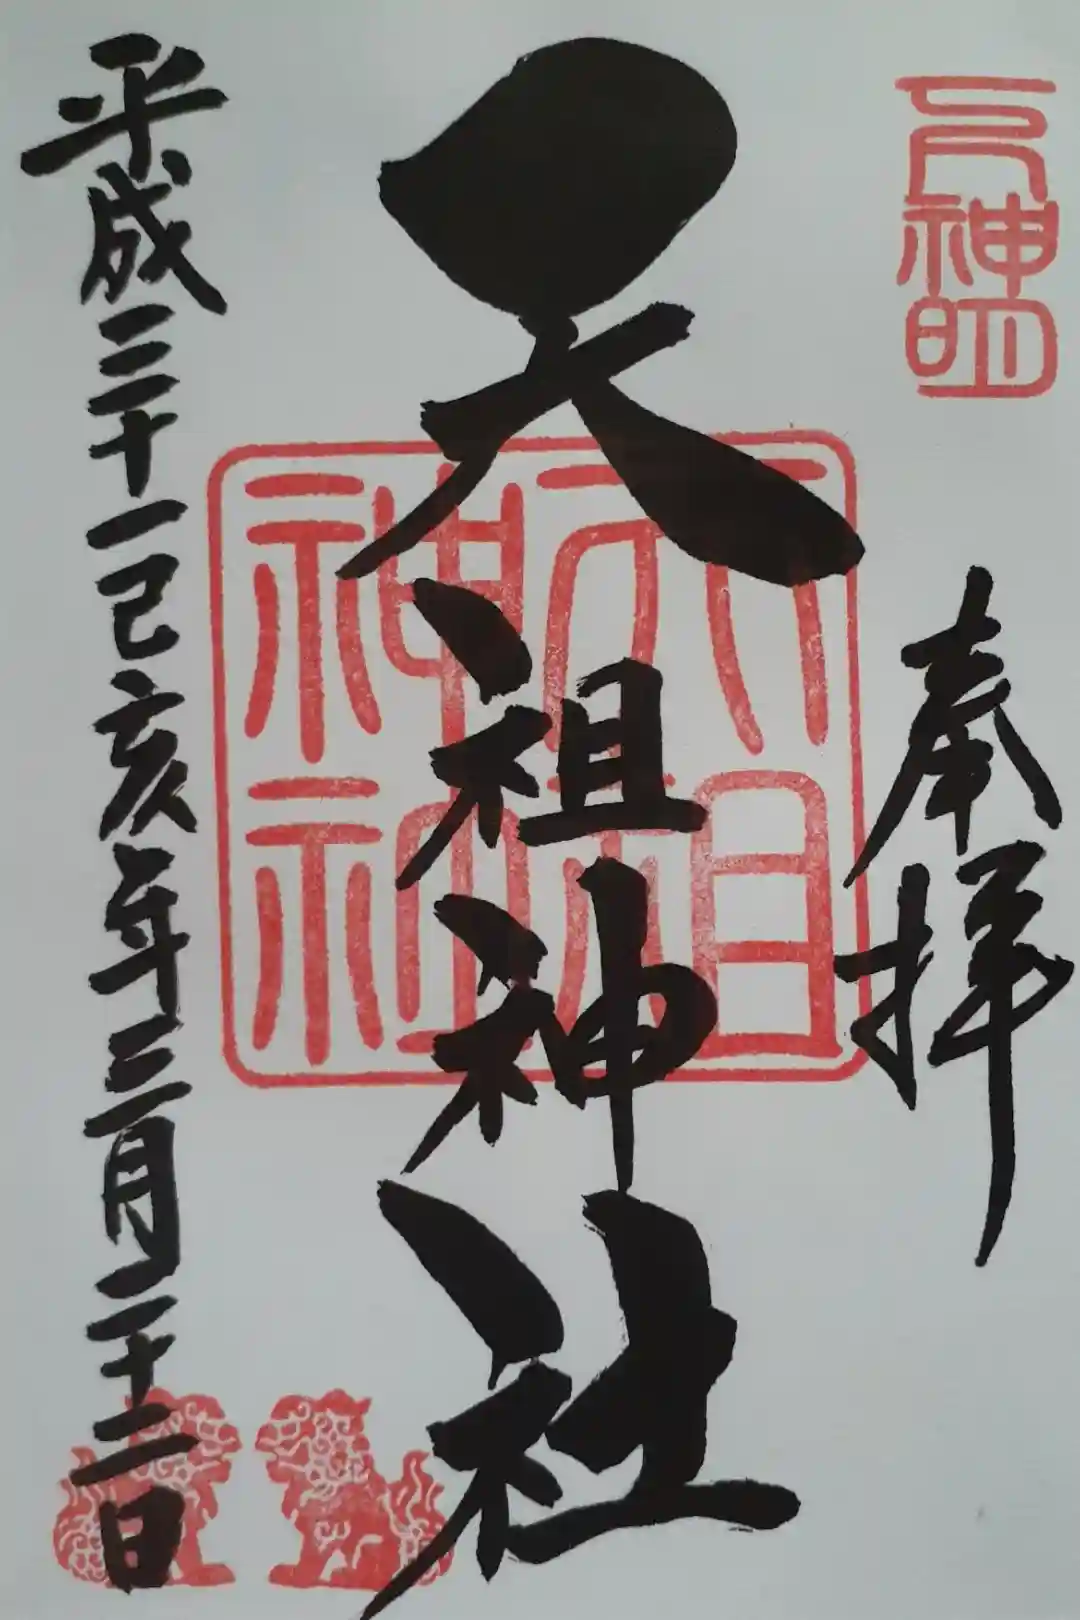 神明
奉拝
天祖神社
天祖神社
平成三十一己亥年三月二十二日